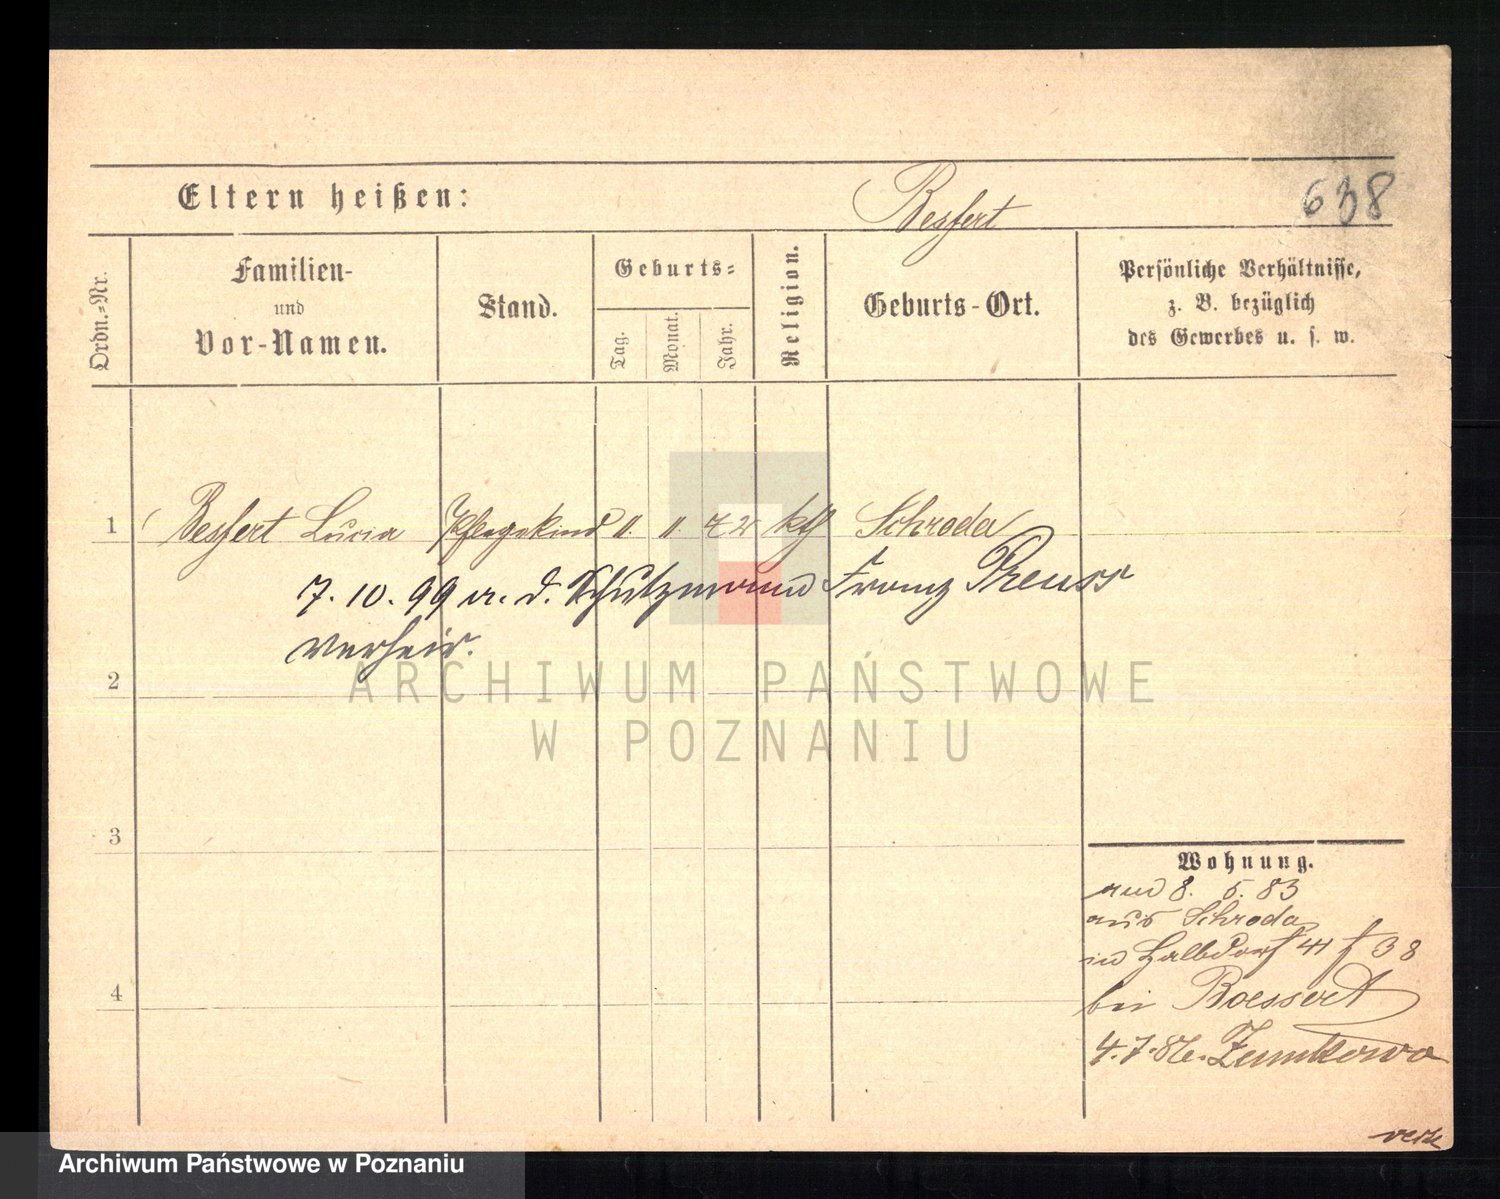 Eltern heißen: Besfert 638
Ordn.-Nr.
Familien-
und
Vor-Namen.
Stand.
Geburts-
Tag.
Monat.
Jahr.
Religion.
Geburts-Ort.
Persönliche Verhältnisse,
z. B. bezüglich
des Gewerbes u. s. w.
1 Besfert Lucia Pflegekind 11. 11. 72 kth Schroda
7. 10. 99 a. d. Schutzmann Franz Preuss
verheir.
2
3
4
Wohnung.
8. 5. 83
aus Schroda
in Halbdorf 38
bei Boessert
4. 7. 86.
ARCHIWUM PAŃSTWOWE
W POZNANIU
Archiwum Państwowe w Poznaniu